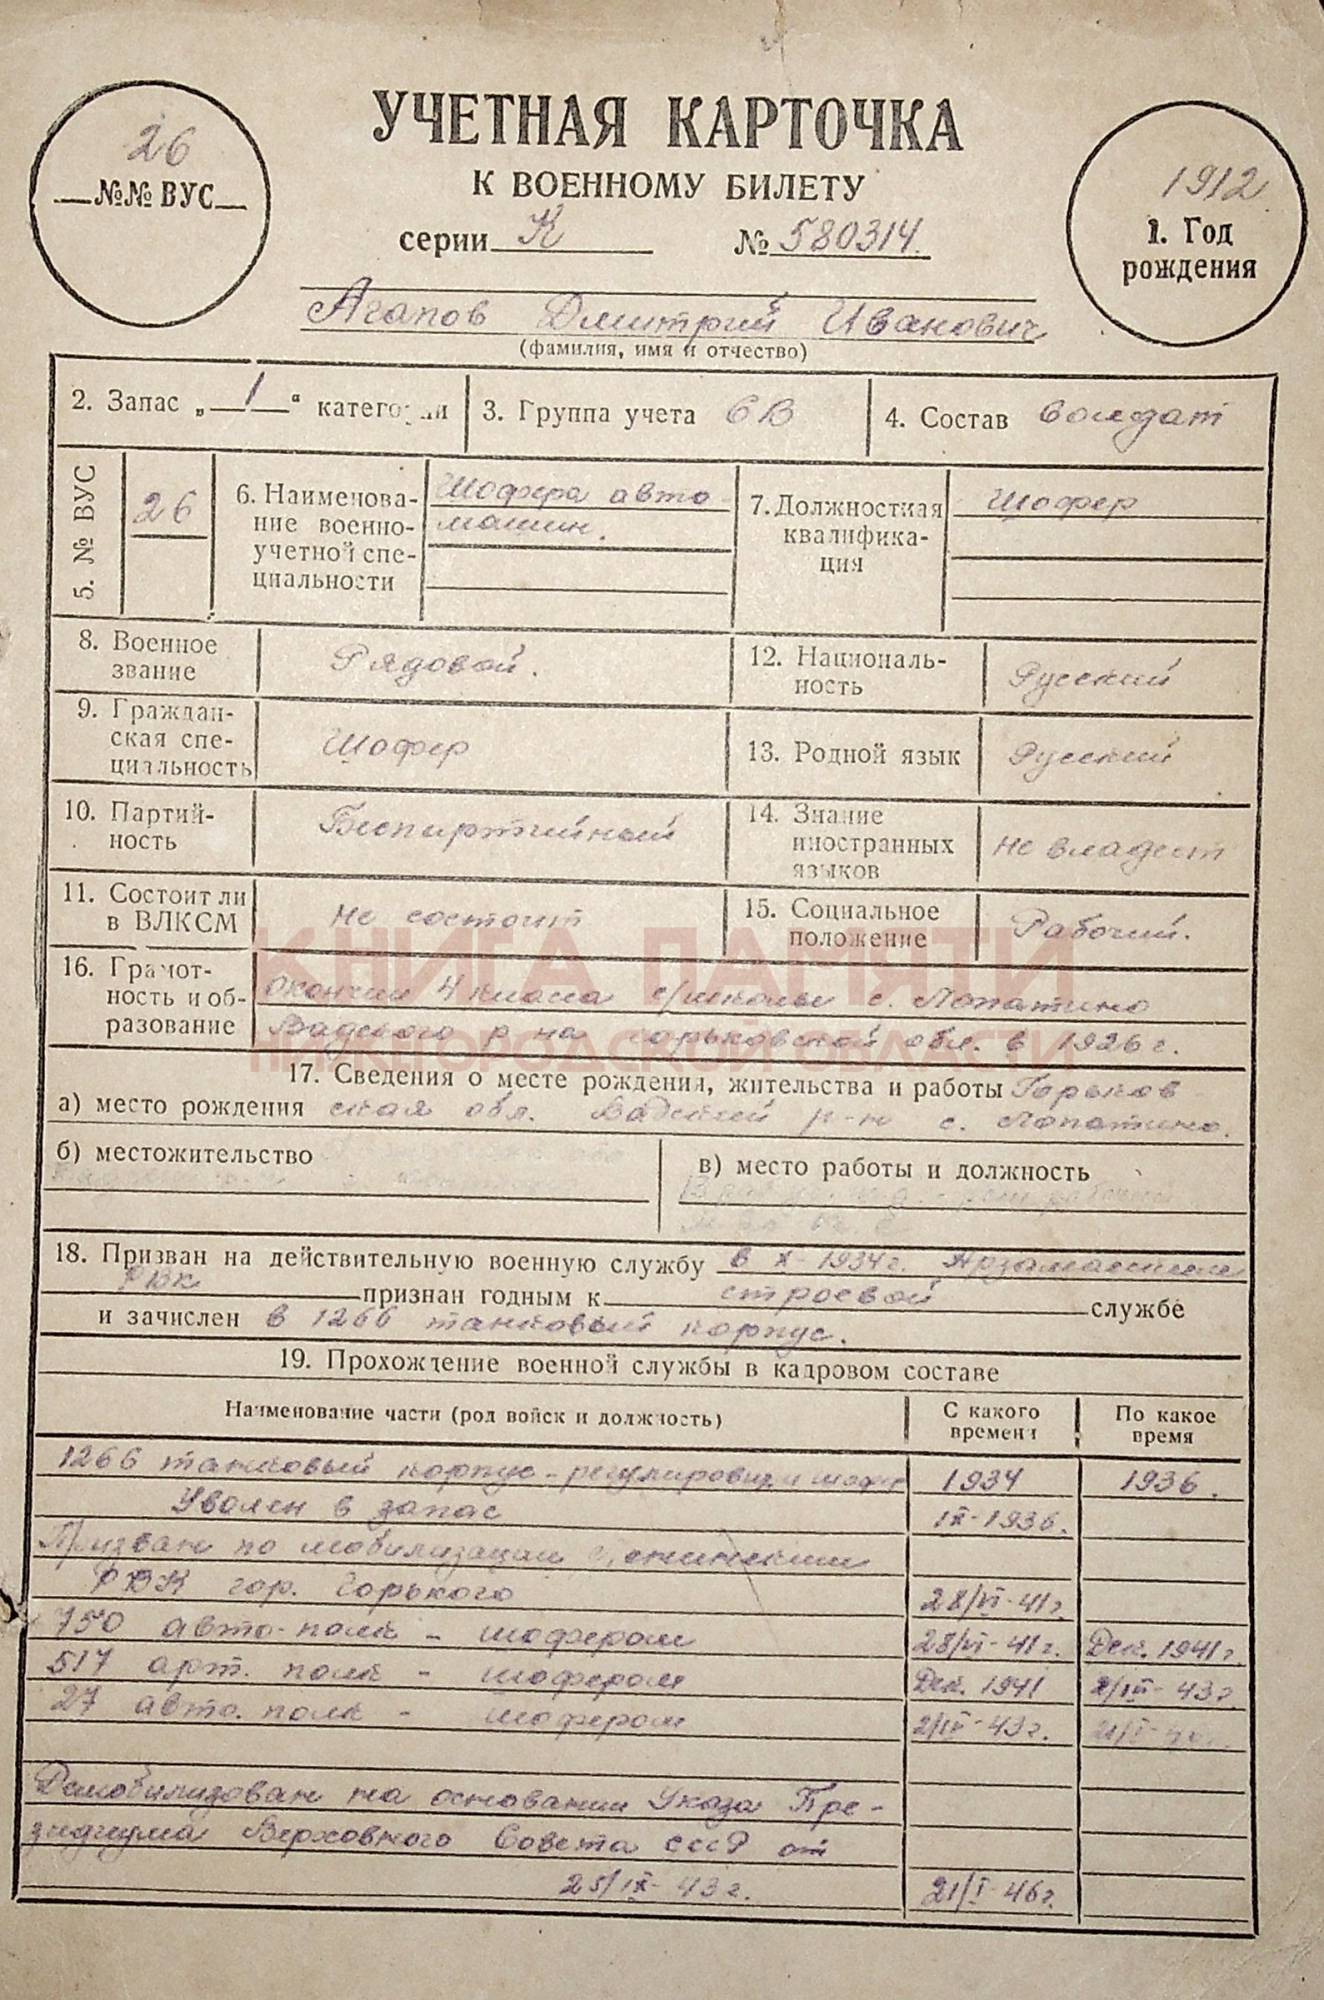 УЧЕТНАЯ КАРТОЧКА
К ВОЕННОМУ БИЛЕТУ
серии К № 580314.
26
№№ ВУС
1912
1. Год
рождения
Агапов Дмитрий Иванович
(фамилия, имя и отчество)
2. Запас „1“ категории
3. Группа учета СВ
4. Состав Солдат
5. № ВУС
26
6. Наименова-
ние военно-
учетной спе-
циальности
Шофера авто-
машин.
7. Должностная
квалифика-
ция
Шофер
8. Военное
звание
Рядовой.
12. Националь-
ность
Русский
9. Граждан-
ская спе-
циальность
Шофер
13. Родной язык
Русский
10. Партий-
ность
Беспартийный
14. Знание
иностранных
языков
Не владеет
11. Состоит ли
в ВЛКСМ
Не состоит
15. Социальное
положение
Рабочий.
КНИГА ПАМЯТИ
НИЖЕГОРОДСКОЙ ОБЛАСТИ
16. Грамот-
ность и об-
разование
Окончил 4 класса с/школы с. Лопатино
Вадского р-на Горьковской обл. в 1926 г.
17. Сведения о месте рождения, жительства и работы Горьков-
а) место рождения ская обл. Вадский р-н с. Лопатино.
б) местожительство
в) место работы и должность
18. Призван на действительную военную службу в X-1934 г. Арзамасским
РВК признан годным к строевой службе
и зачислен в 1266 танковый корпус.
19. Прохождение военной службы в кадровом составе
Наименование части (род войск и должность)
С какого
времени
По какое
время
1266 танковый корпус - регулировщик шофер 1934 1936.
Уволен в запас IX-1936.
Призван по мобилизации
РВК гор. Горького 28/VI-41г.
750 авто-полк - шофером 28/VI-41г. Дек. 1941г.
517 арт. полк - шофером Дек. 1941 2/III-43г.
27 авто. полк - шофером 2/III-43г.
Демобилизован на основании Указа Пре-
зидиума Верховного Совета СССР от
25/IX-43г. 21/I-46г.